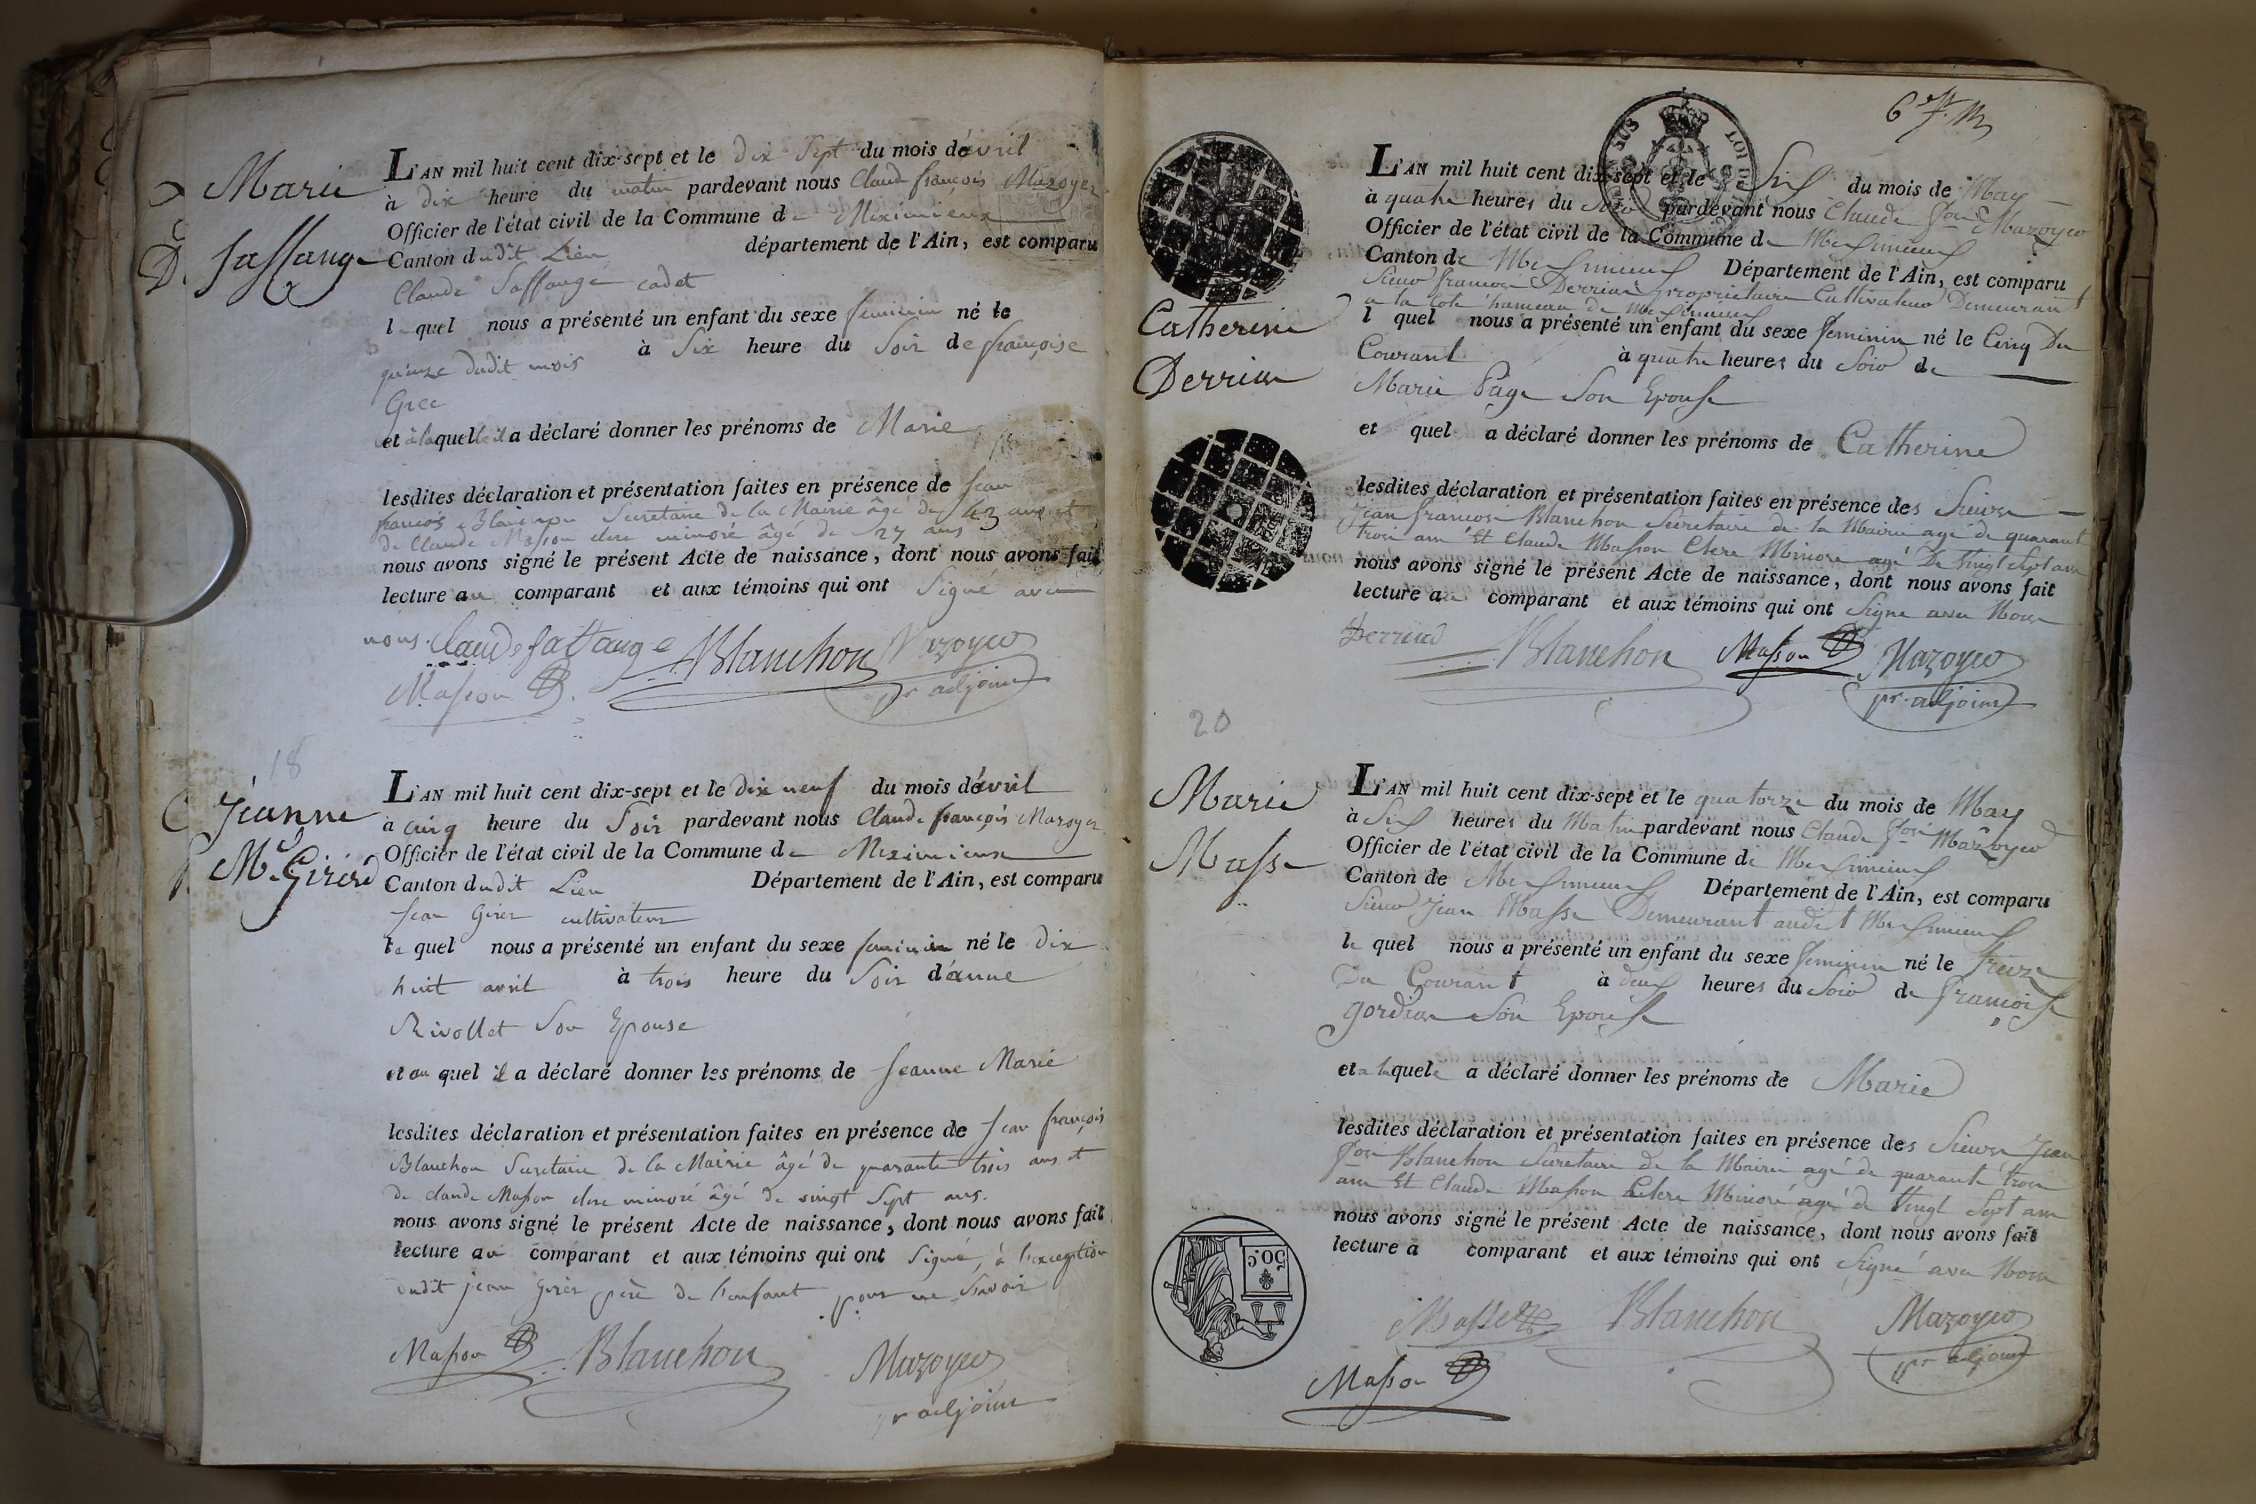 Marie
Saffange
L'AN mil huit cent dix-sept et le dix Sept du mois d'avril
à dix heure du matin pardevant nous Claude françois Mazoyer
Officier de l'état civil de la Commune de Meximieux
Canton dudit Lieu département de l'Ain, est comparu
Claude Saffange cadet
lequel nous a présenté un enfant du sexe feminin né le
quinze dudit mois à Six heure du Soir de françoise
Grec
et à laquelle il a déclaré donner les prénoms de Marie
lesdites déclaration et présentation faites en présence de Jean
françois Blanchon Secretaire de la Mairie âgé de 43 ans et
de Claude Masson clerc minoré âgé de 27 ans
nous avons signé le présent Acte de naissance, dont nous avons fait
lecture au comparant et aux témoins qui ont Signé avec
nous. Claude Saffange Blanchon Mazoyer
Masson pr adjoint
18
Jeanne
Mie Girerd
L'AN mil huit cent dix-sept et le dix neuf du mois d'avril
à cinq heure du Soir pardevant nous Claude françois Mazoyer
Officier de l'état civil de la Commune de Meximieux
Canton dudit Lieu Département de l'Ain, est comparu
Jean Girer cultivateur
lequel nous a présenté un enfant du sexe feminin né le dix
huit avril à trois heure du Soir d'anne
Rivollet Son Epouse
et au quel il a déclaré donner les prénoms de Jeanne Marie
lesdites déclaration et présentation faites en présence de Jean françois
Blanchon Secretaire de la Mairie âgé de quarante trois ans et
de claude Masson clerc minoré âgé de vingt Sept ans.
nous avons signé le présent Acte de naissance, dont nous avons fait
lecture au comparant et aux témoins qui ont Signé, à l'exception
dudit jean Girer père de l'enfant pour ne Savoir
Masson Blanchon Mazoyer
pr adjoint
Catherine
Derrias
L'AN mil huit cent dix-sept et le Six du mois de May
à quatre heures du Soir pardevant nous Claude fois Mazoyer
Officier de l'état civil de la Commune de Meximieux
Canton de Meximieux Département de l'Ain, est comparu
Sieur francois Derrias proprietaire Cultivateur Demeurant
a la Cote hameau de Meximieux
l quel nous a présenté un enfant du sexe feminin né le Cinq Du
Courant à quatre heures du Soir de
Marie Page Son Epouse
et quel a déclaré donner les prénoms de Catherine
lesdites déclaration et présentation faites en présence des Sieurs
Jean francois Blanchon Secretaire de la Mairie agé de quarante
trois ans Et Claude Masson Clerc Minoré agé De Vingt Sept ans
nous avons signé le présent Acte de naissance, dont nous avons fait
lecture au comparant et aux témoins qui ont Signé avec Nous
Blanchon Masson Mazoyer
pr. adjoint
20
Marie
Masse
L'AN mil huit cent dix-sept et le quatorze du mois de May
à Six heures du Matin pardevant nous Claude fois Mazoyer
Officier de l'état civil de la Commune de Meximieux
Canton de Meximieux Département de l'Ain, est comparu
Sieur Jean Masse Demeurant audit Meximieux
le quel nous a présenté un enfant du sexe feminin né le treize
Du Courant à deux heures du Soir de francoise
gordian Son Epouse
et a laquele a déclaré donner les prénoms de Marie
lesdites déclaration et présentation faites en présence des Sieurs Jean
fois Blanchon Secretaire de la Mairie agé de quarante trois
ans Et Claude Masson Clerc Minoré agé de Vingt Sept ans
nous avons signé le présent Acte de naissance, dont nous avons fait
lecture a comparant et aux témoins qui ont Signé avec Nous
Masse Blanchon Mazoyer
Masson pr adjoint
50c